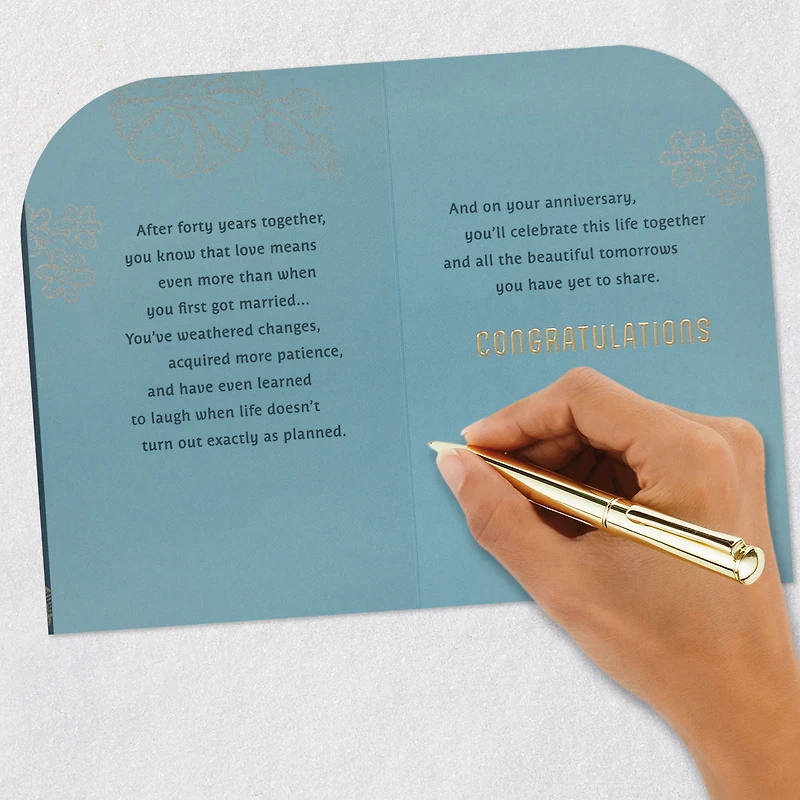 After forty years together,
you know that love means
even more than when
you first got married...
You've weathered changes,
acquired more patience,
and have even learned
to laugh when life doesn't
turn out exactly as planned.
And on your anniversary,
you'll celebrate this life together
and all the beautiful tomorrows
you have yet to share.
CONGRATULATIONS